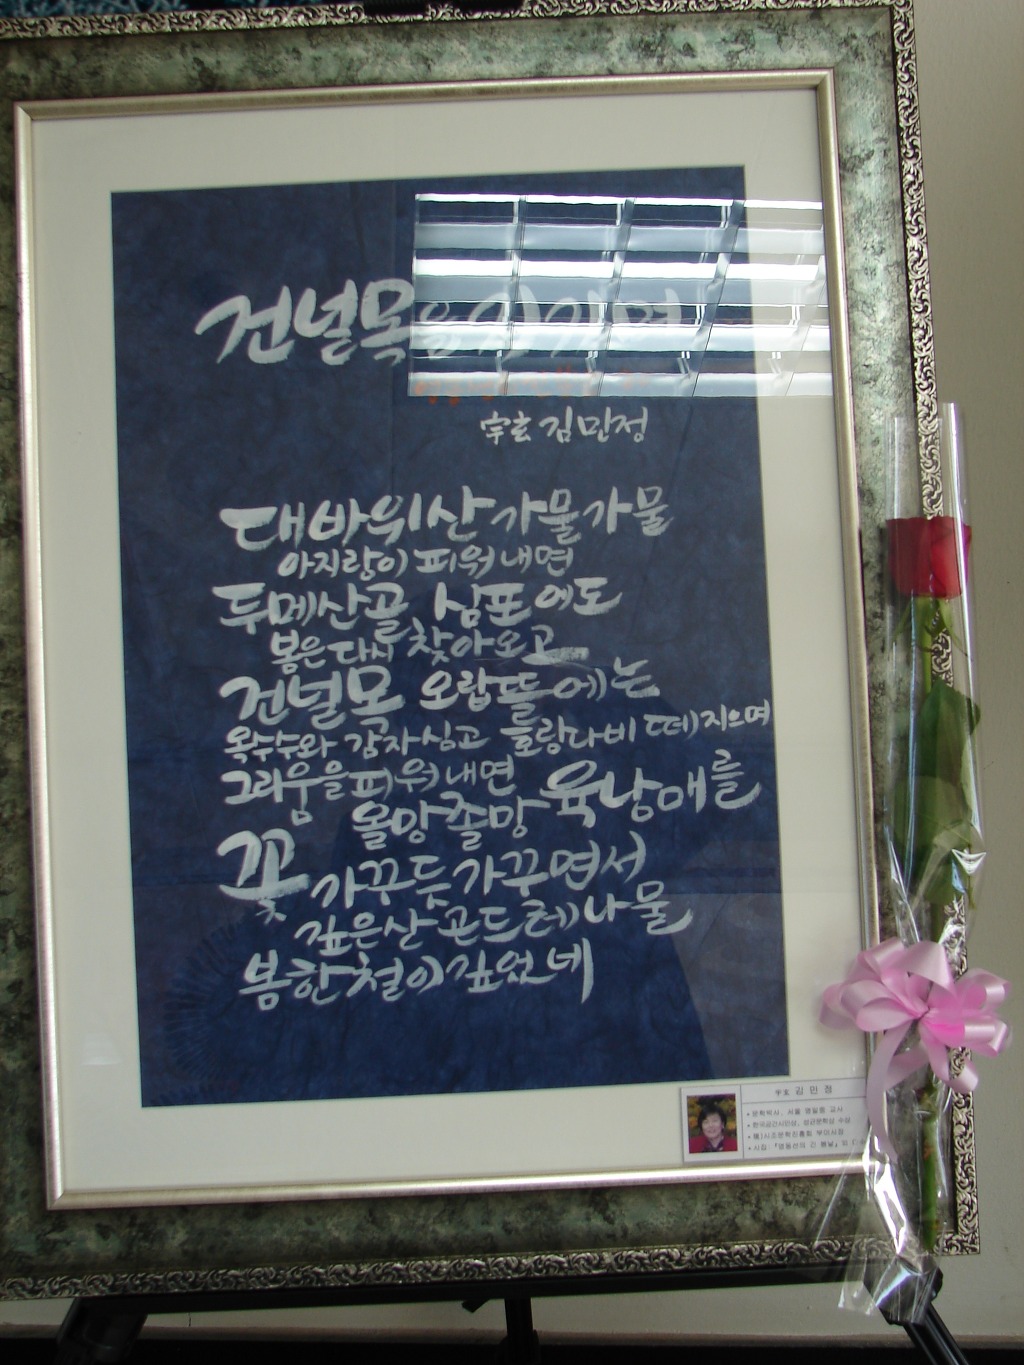 건널목을 지키며
宇玄 김민정
대바위산 가물가물
아지랑이 피워내면
두메산골 심포에도
봄은 다시 찾아오고
건널목 오랍뜰에는
옥수수와 감자 심고 호랑나비 떼지으며
그리움을 피워내면 육남매를
올망졸망
꽃 가꾸듯 가꾸면서
깊은 산 곤드레 나물
봄 한철이 깊었네
宇玄 김 민 정
• 문학박사, 서울 명일중 교사
• 한국공간시인상, 성균문학상 수상